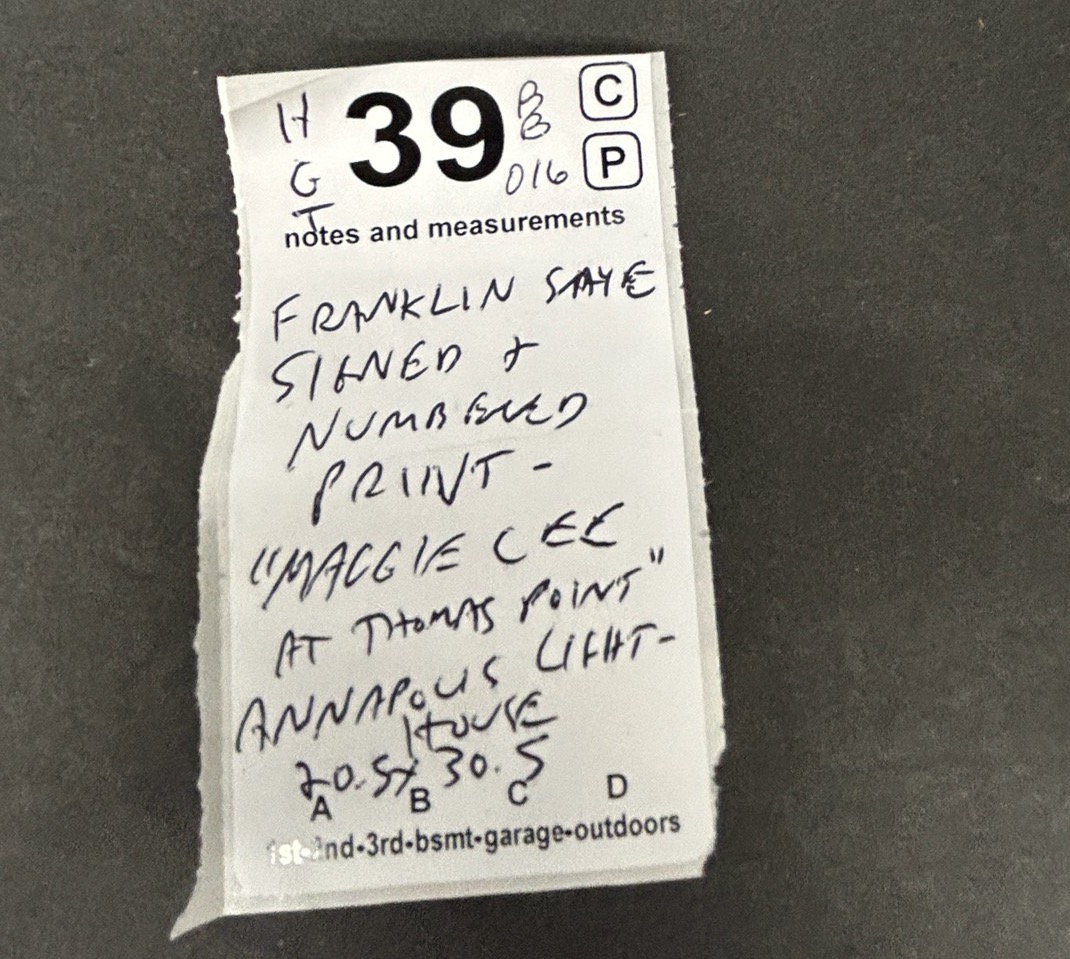 H G T 39 B B 016 C P
notes and measurements
FRANKLIN SAYE
SIGNED +
NUMBERED
PRINT -
"MAGGIE CEE
AT THOMAS POINT"
ANNAPOLIS LIGHT-
HOUSE
20.5x 30.5
A B C D
1st•2nd•3rd•bsmt•garage•outdoors